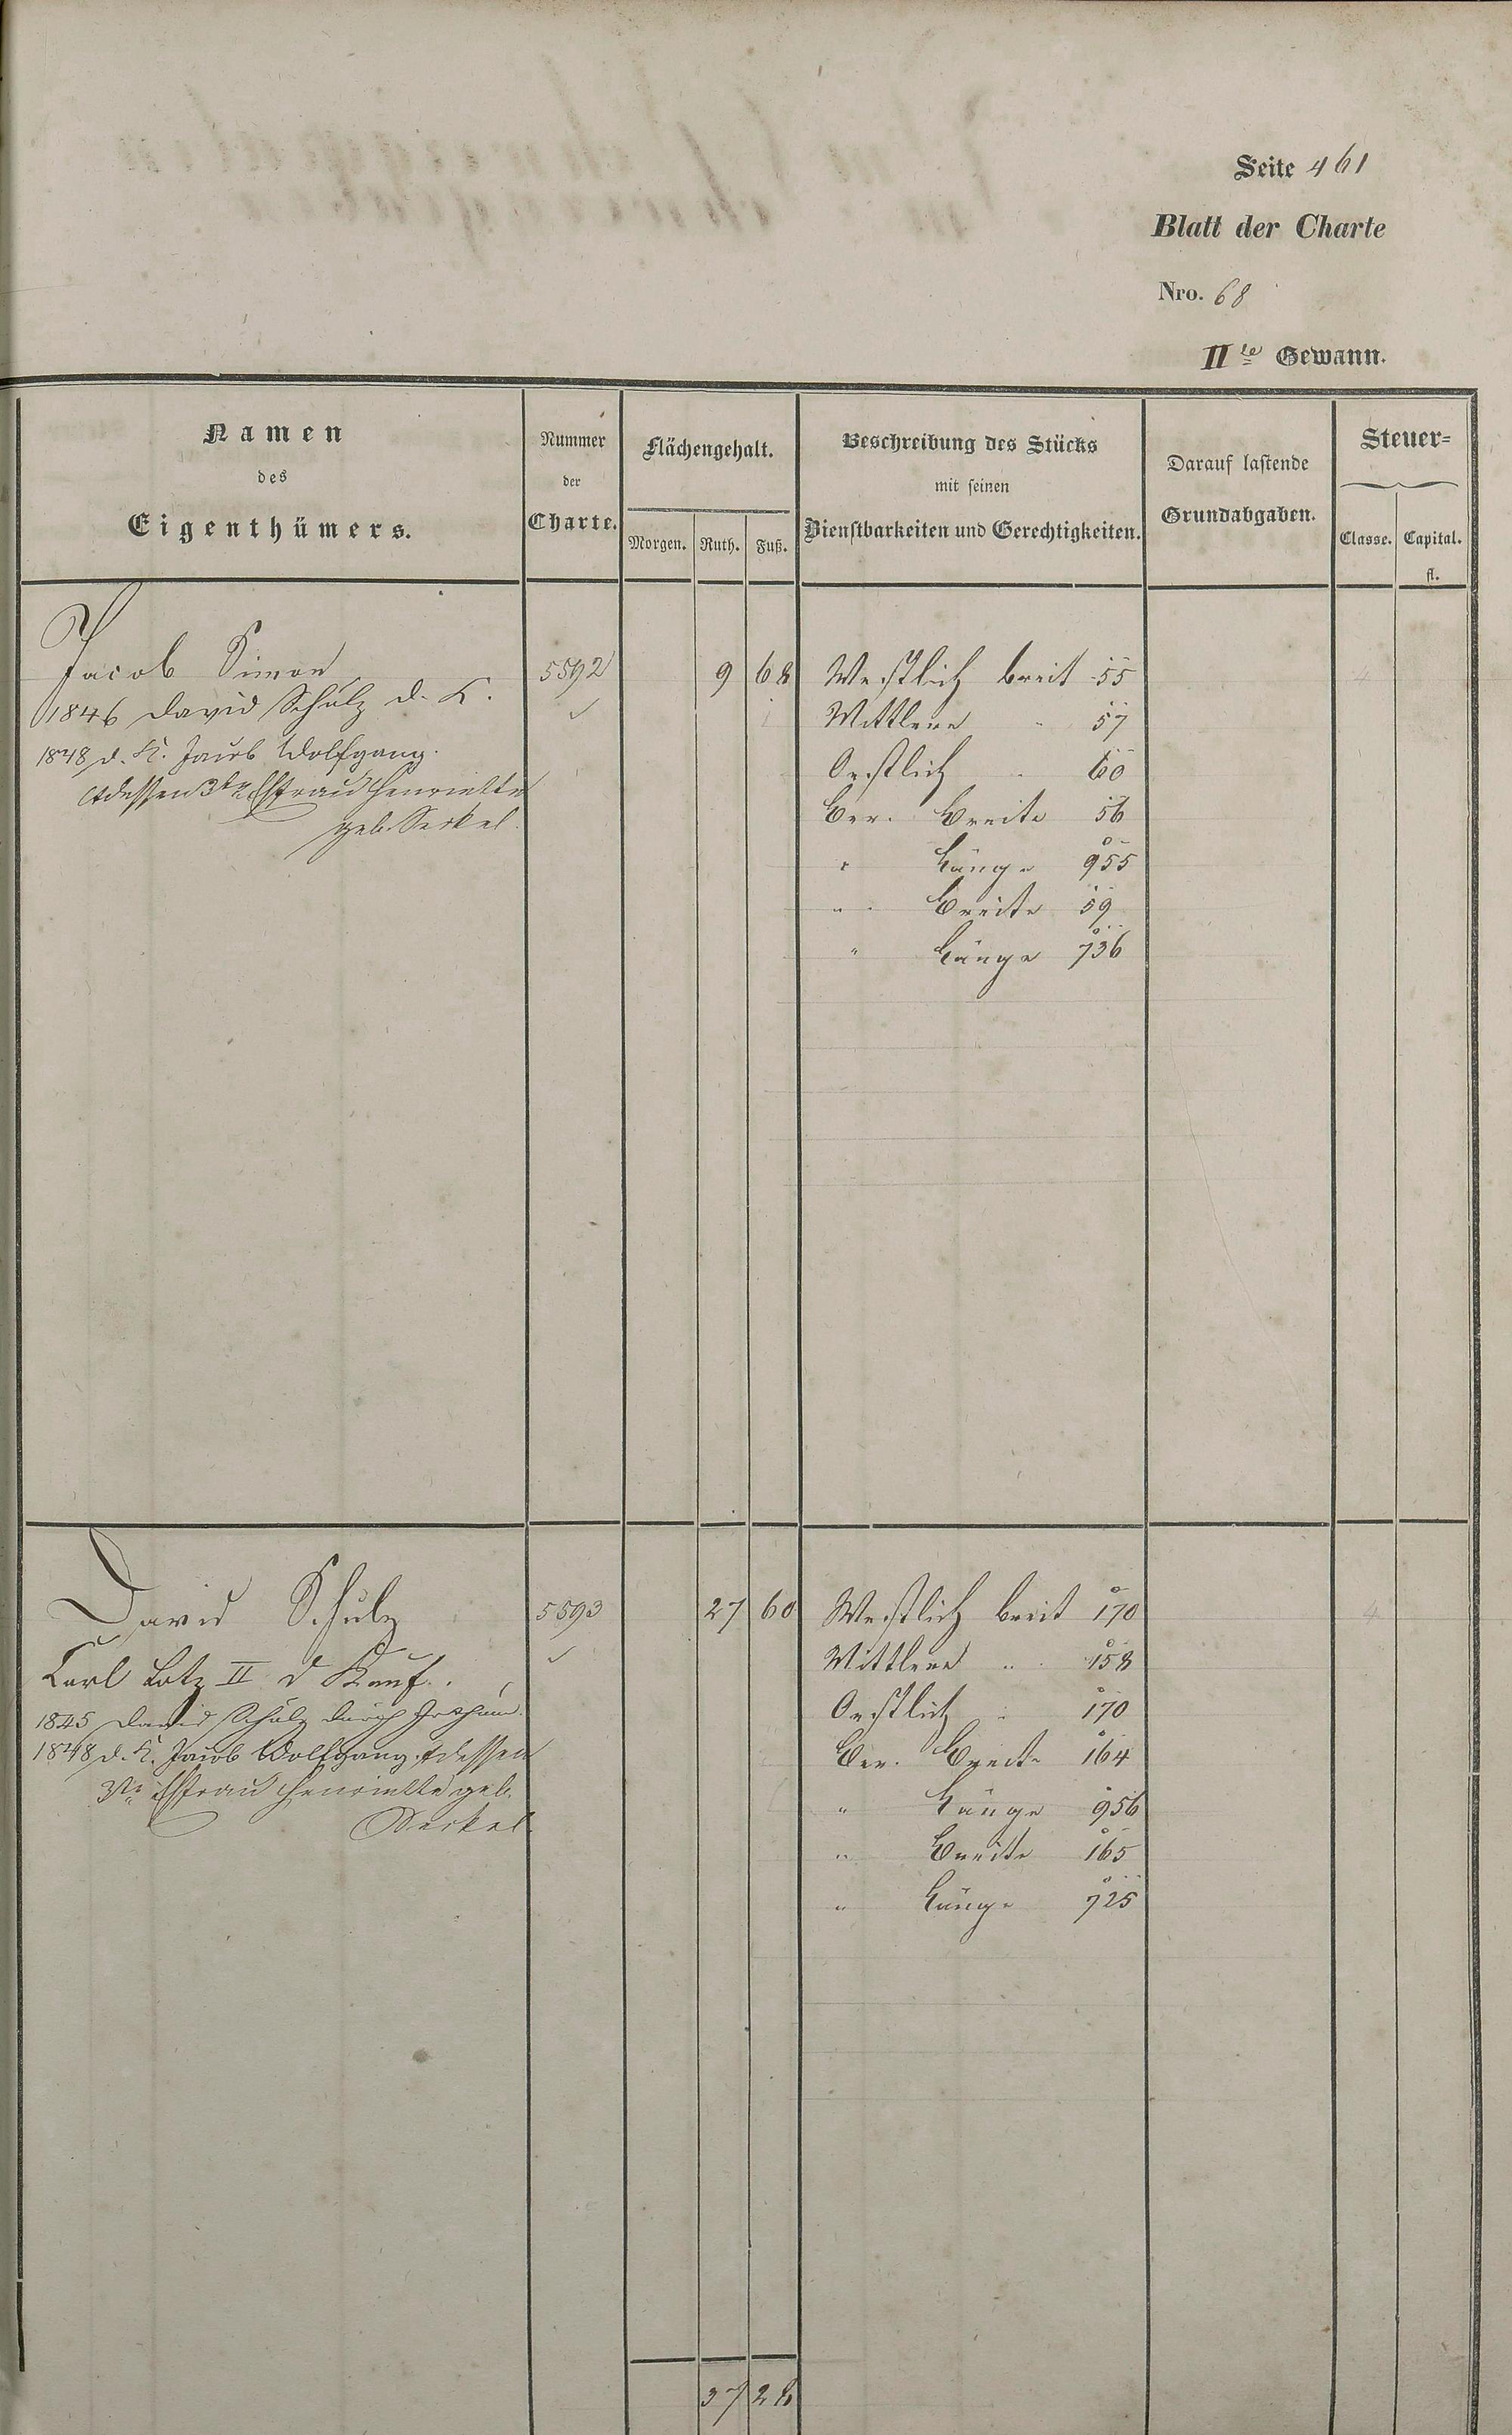 Seite 461
Blatt der Charte
Nro. 68
II te Gewann.
Namen
des
Eigenthümers.
Nummer
der
Charte.
Flächengehalt.
Morgen. Ruth. Fuß.
Beschreibung des Stücks
mit seinen
Dienstbarkeiten und Gerechtigkeiten.
Darauf lastende
Grundabgaben.
Steuer=
Classe. Capital.
fl.
Jacob Simon 5592 9 68 Westlich breit 55 4
1846 David Schulz d. K.
Mittlere " 57
1848 d. K. Jacob Wolfgang.
Oestlich " 60
&dessen 3te Ehfrau Henriette
Ber. Breite 56
geb. Seckel.
" Länge 955
" Breite 59
" Länge 736
David Schulz 5593 27 60 Westlich breit 170 4
Carl Lotz II d Kauf.
Mittlere " 158
1845 David Schulz durch
Oestlich " 170
1848 d. K. Jacob Wolfgang &dessen
Ber. Breite 164
3te Ehfrau Henriette geb.
" Länge 956
Seckel.
" Breite 165
" Länge 725
37 28